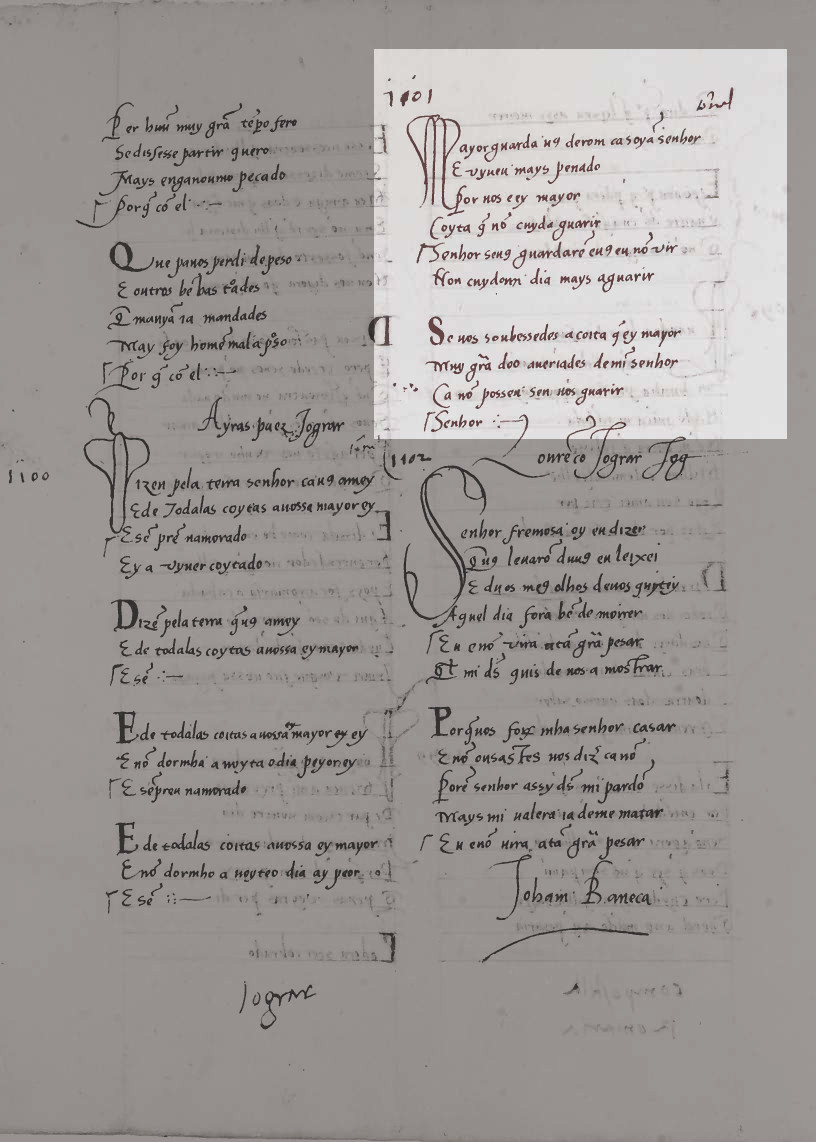 Per huũ muy grã tẽpo fero
Se dissesse partir quero
Mays enganoumo pecado
Porq̃ cõ el
Que panos perdi de peso
E outros bẽ bastõades
E manyã ia mandades
May foy home mal apso
Por q̃ cõ el
Ayras paez Jograr
1100
Dizen pela terra senhor ca uꝯ amey
E de Todalas coytas a uossa mayor ey
E sẽ prẽ namorado
Ey a vyuer coytado
Dizẽ pela terra q̃ uꝯ amey
E de todalas coytas a uossa ey mayor
E sẽ
E de todalas coitas a uossa mayor ey ey
E nõ dormha a noyta o dia peyor ey
E sẽpreu namorado
E de todalas coitas a uossa ey mayor
E nõ dormho a noyteo dia ay peor
E sẽ
Jograr
1101
Mayor guarda uꝯ derom ca soyã senhor
E vyueu mays penado
Por uos e ey mayor
Coyta q̃ nõ cuyda guarir
Senhor seuꝯ guardarẽ euꝯ eu nõ vir
Non cuydem dia mays aguarir
Se uos soubessedes a coita q̃ ey mayor
Muy grã doo aueriades de mĩ senhor
Ca nõ posseu sen uos guarir
Senhor
1102
Lourẽco Jograr Jog
Senhor fremosa oy eu dizer
Que uꝯ leuarõ duuꝯ eu leixei
E duos meꝯ olhos de uos quytey
Aquel dia fora bẽ de morrer
Eu e nõ vira atã grã pesar
Qt mi dš quis de uos a mostrar
Porq̃ uos forõ mha senhor casar
E nõ ousastes uos dizer ca nõ
Porẽ senhor assy dš mi pardõ
Mays mi ualera ia de me matar
Eu e nõ uira atã grã pesar
Joham Baueca